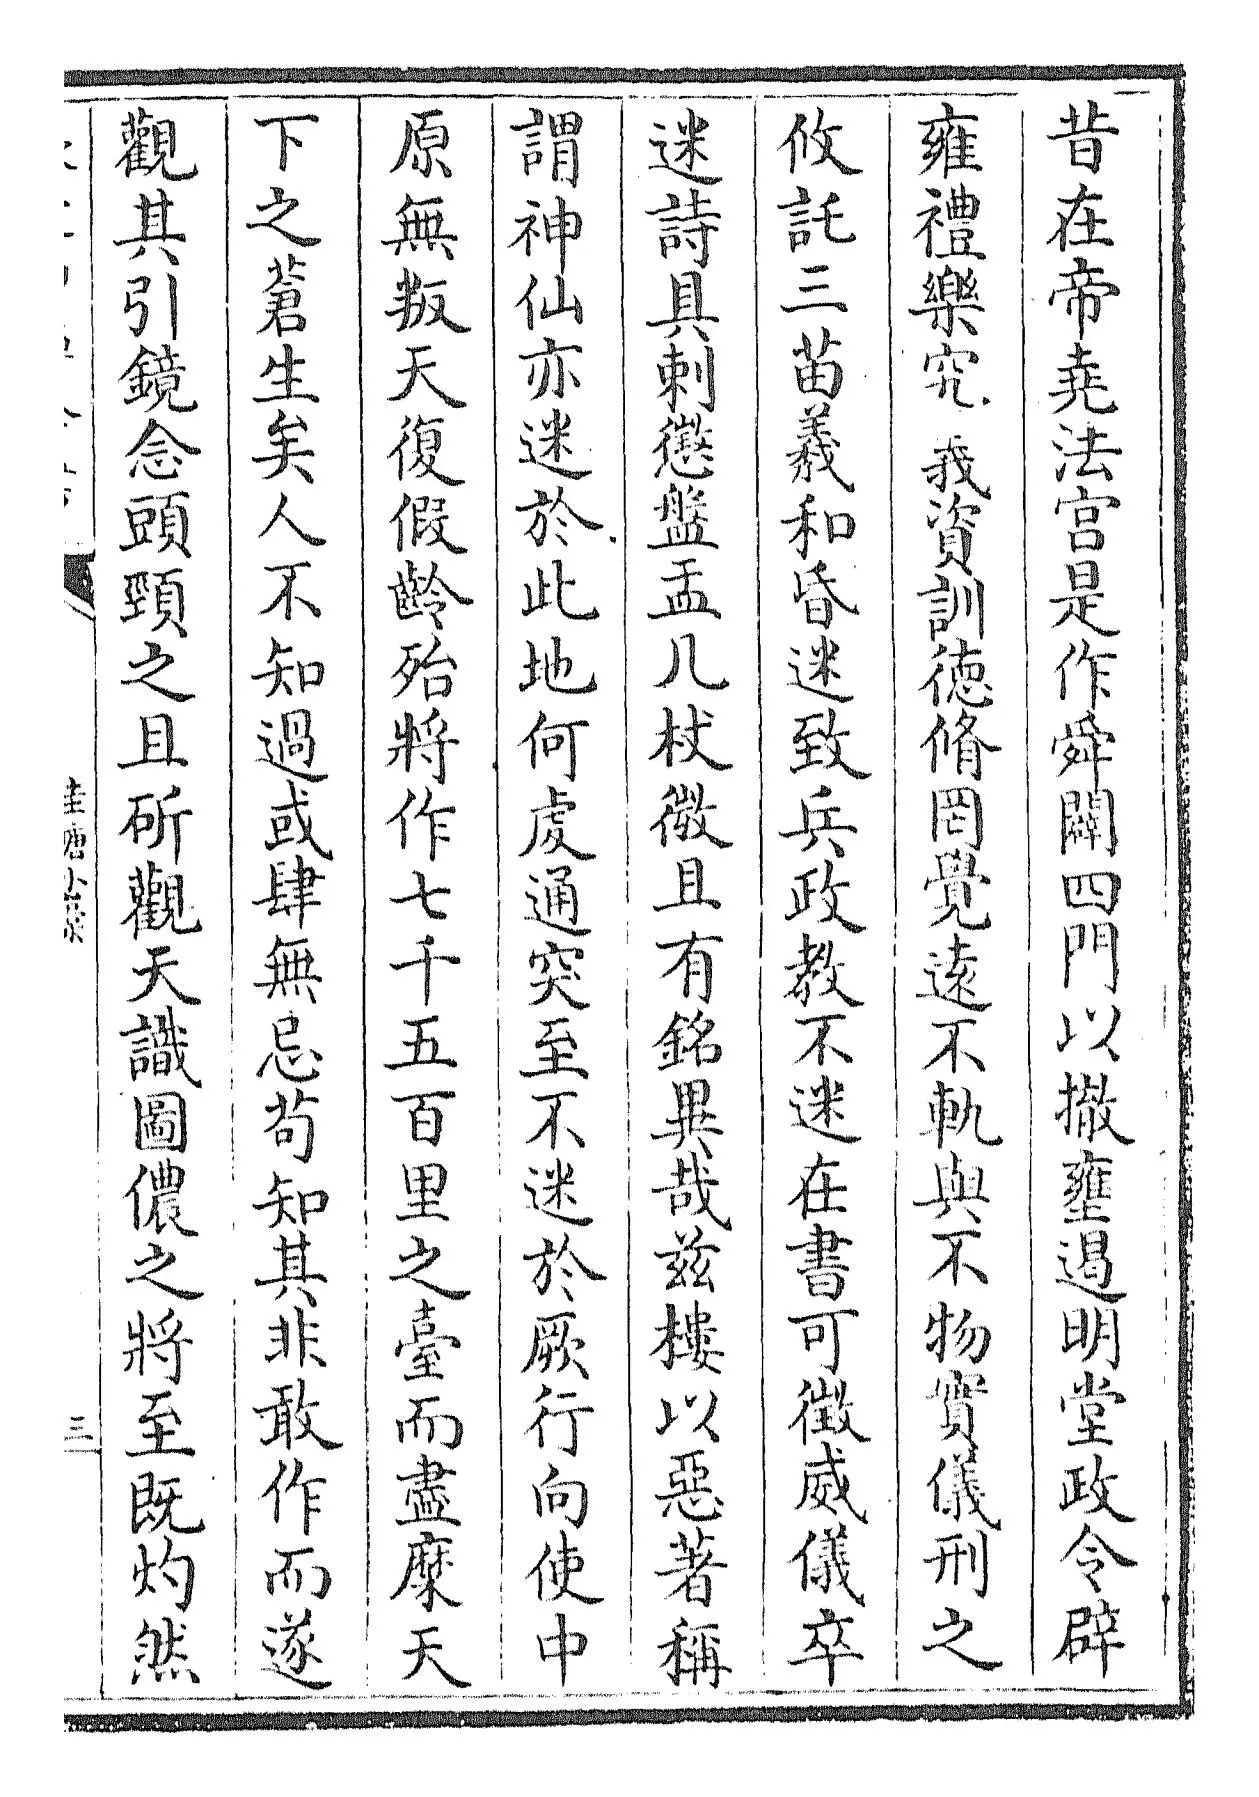 昔在帝堯法宫是作舜闢四門以撤壅遏明堂政令辟
雍禮樂究義資訓德脩罔覺遠不軌與不物實儀刑之
攸託三苗羲和昏迷致兵政教不迷在書可徵威儀卒
迷詩具刺懲盤盂几杖徵且有銘異哉兹樓以惡著稱
謂神仙亦迷於此地何處通突至不迷於厥行向使中
原無叛天復假齡殆將作七千五百里之臺而盡糜天
下之蒼生矣人不知過或肆無忌苟知其非敢作而遂
觀其引鏡念頭頸之且斫觀天識圖儂之將至既灼然
圭塘小藁
三